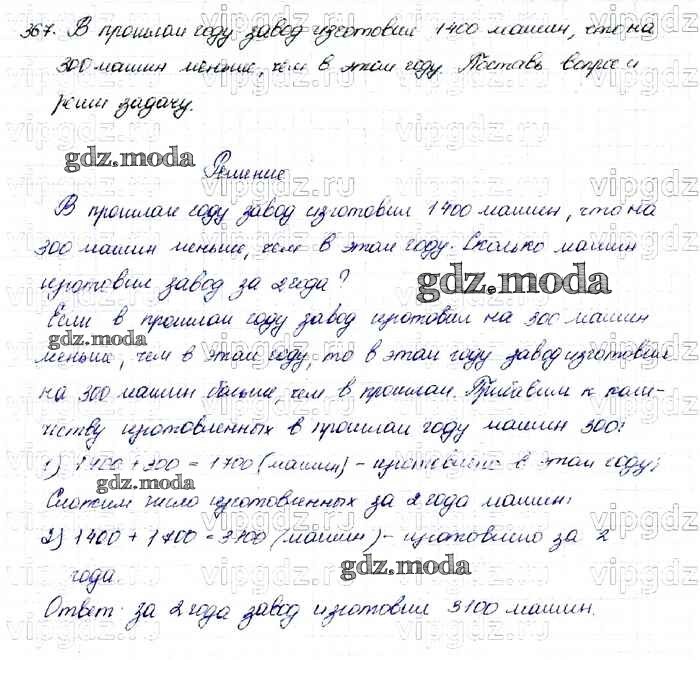 367. В прошлом году завод изготовил 1400 машин, что на
300 машин меньше, чем в этом году. Поставь вопрос и
реши задачу.
gdz.moda
Решение
В прошлом году завод изготовил 1400 машин, что на
300 машин меньше, чем в этом году. Сколько машин
изготовил завод за 2 года?
gdz.moda
Если в прошлом году завод изготовил на 300 машин
gdz.moda
меньше, чем в этом году, то в этом году завод изготовил
на 300 машин больше, чем в прошлом. Прибавим к коли-
честву изготовленных в прошлом году машин 300:
1) 1400 + 300 = 1700 (машин) - изготовлено в этом году;
gdz.moda
Сложим число изготовленных за 2 года машин:
2) 1400 + 1700 = 3100 (машин) - изготовлено за 2
года.
gdz.moda
Ответ: за 2 года завод изготовил 3100 машин.